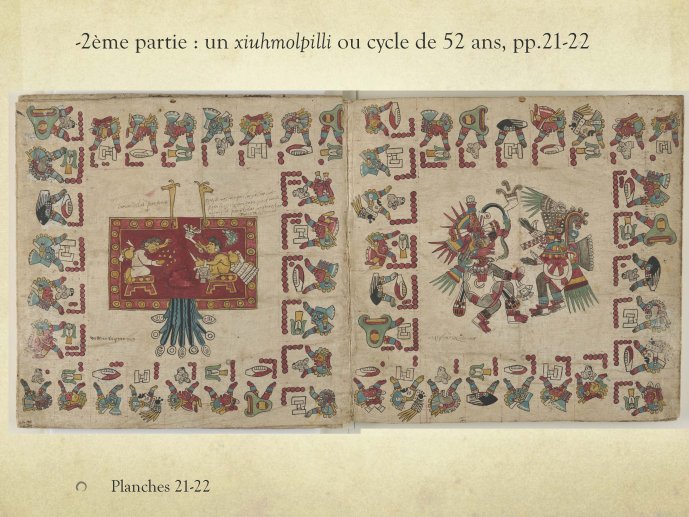 -2ème partie : un xiuhmolpilli ou cycle de 52 ans, pp.21-22
Planches 21-22